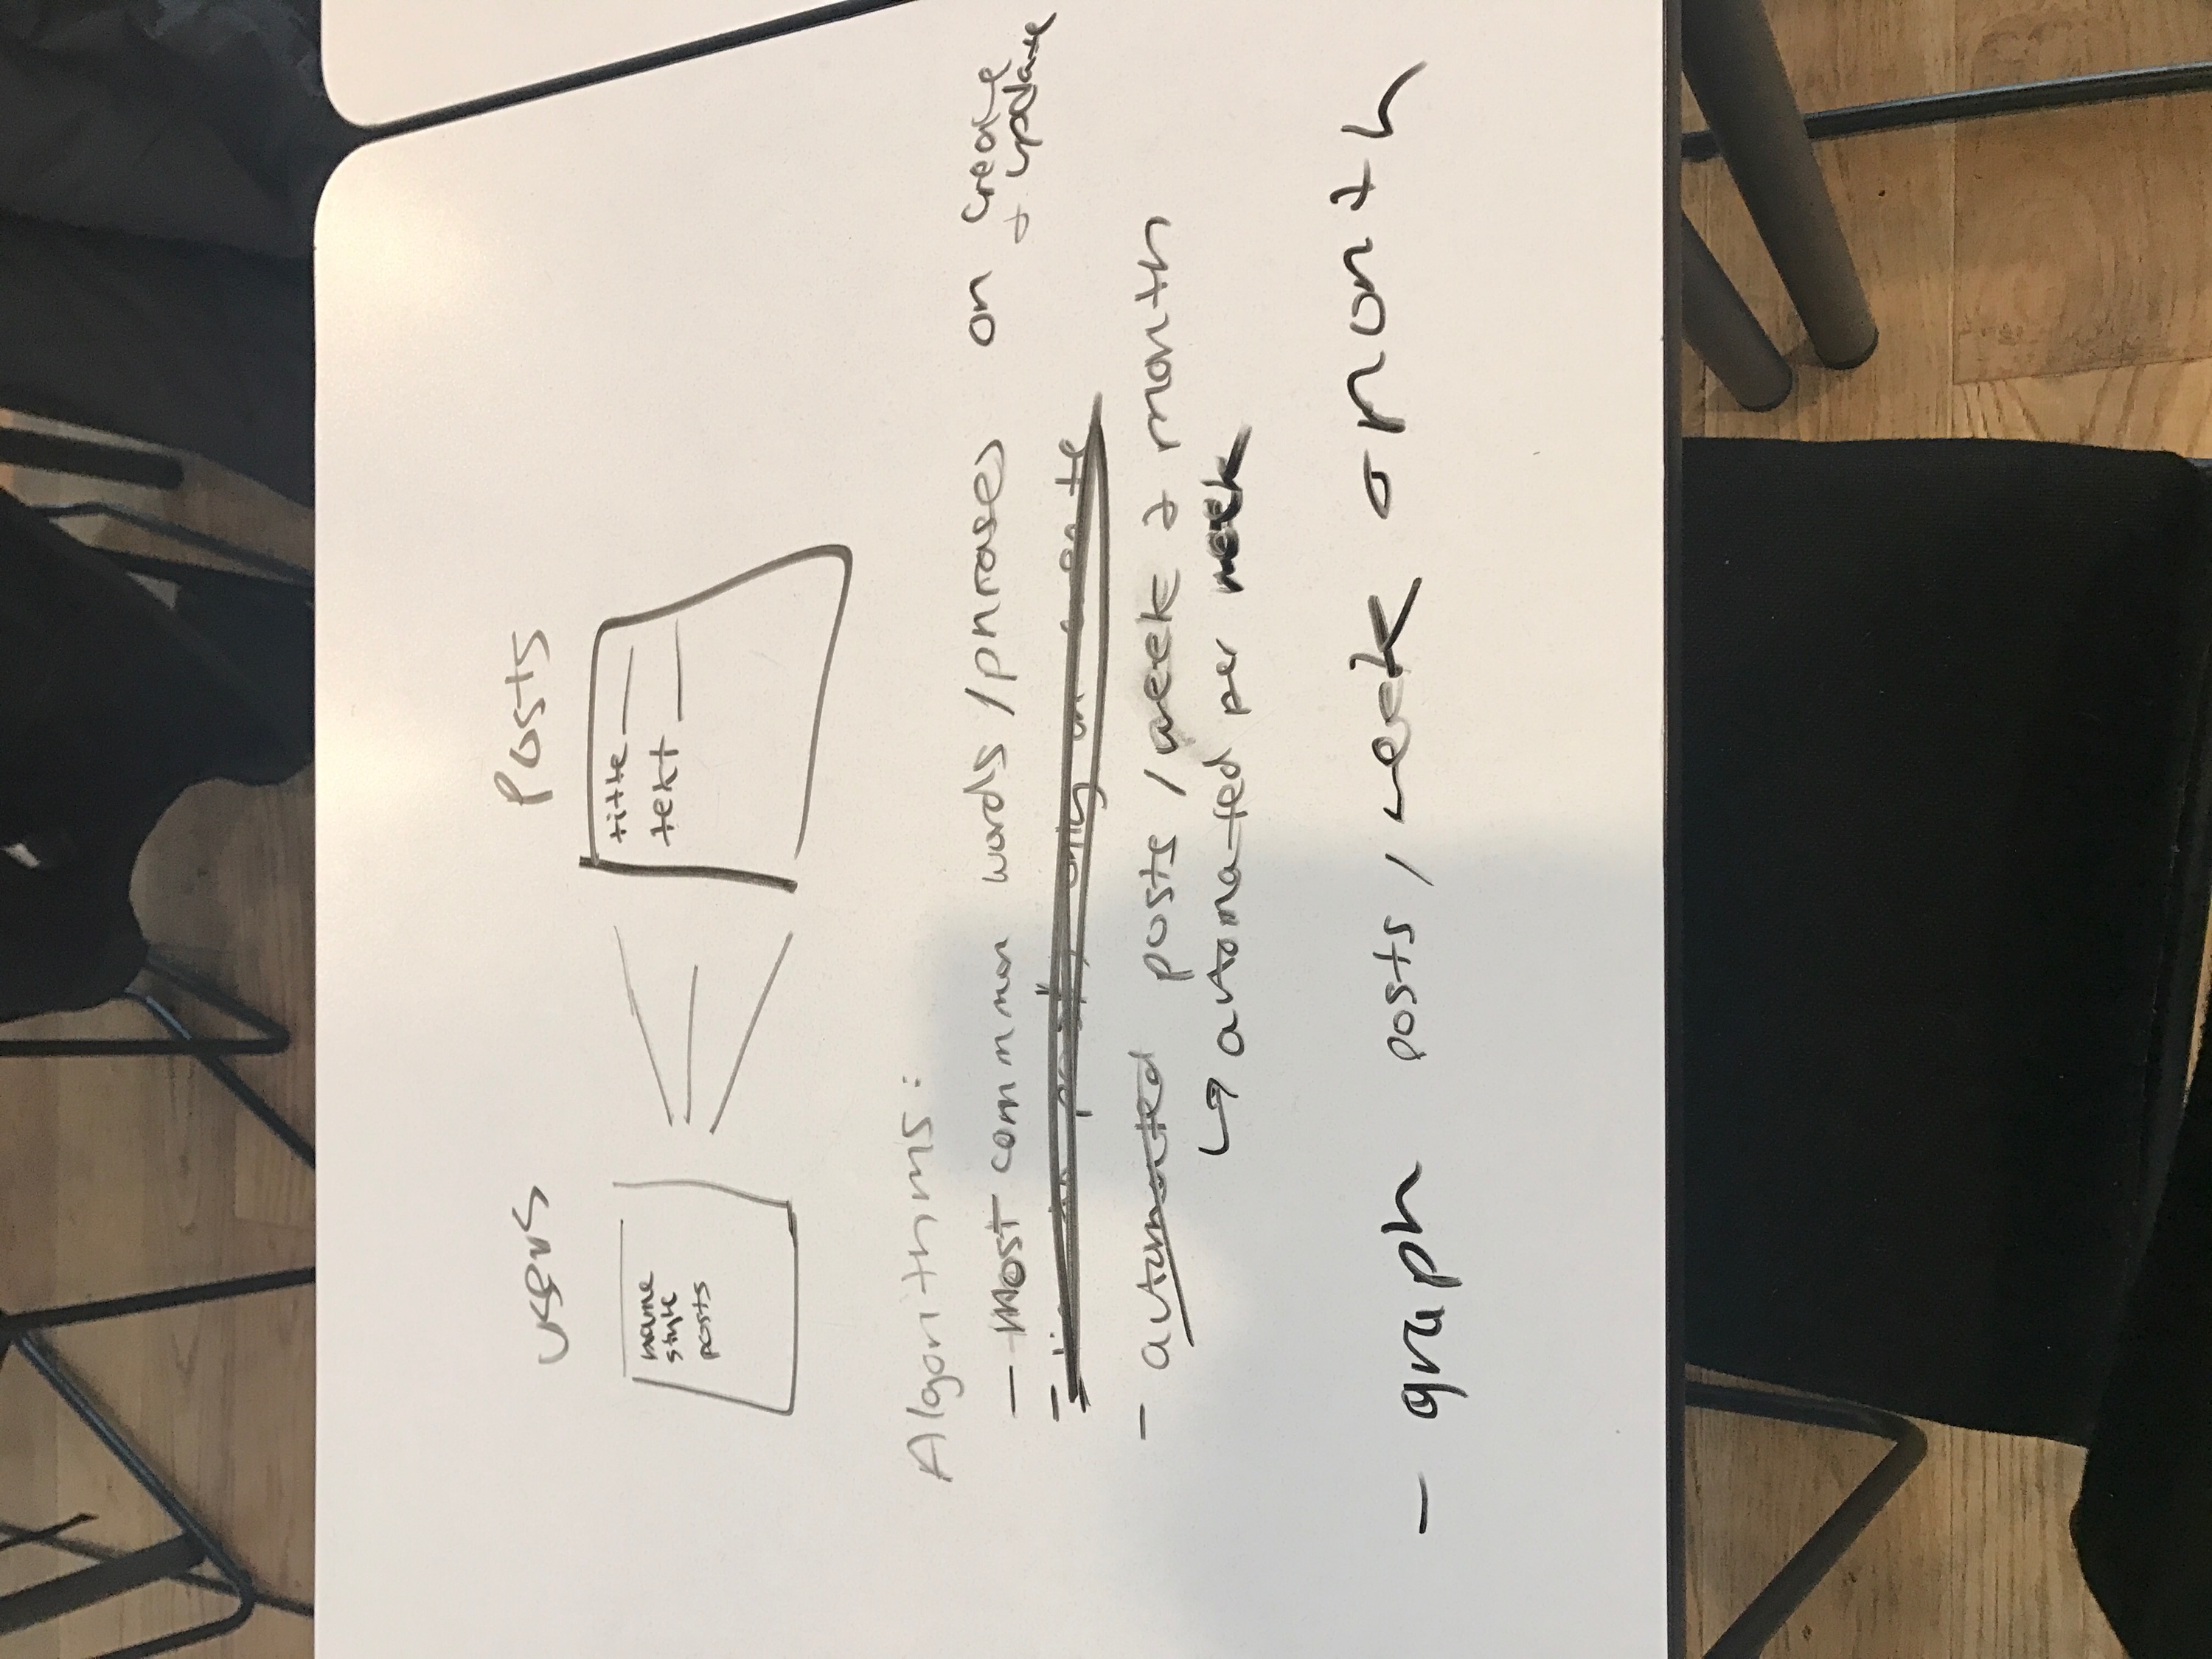 users
Posts
name
style
posts
title
text
Algorithms:
- most common words/phrases on create
+ update
- posts only on create
- automated posts/week & month
↳ automated per week
- graph posts/week & month